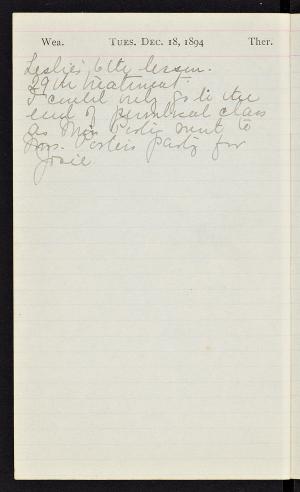 Wea. TUES. DEC. 18, 1894 Ther.
Leslie's 6th lesson.
29th treatment.
I could only go to the
end of class
as Miss went to
Mrs. Porter's party for
Josie